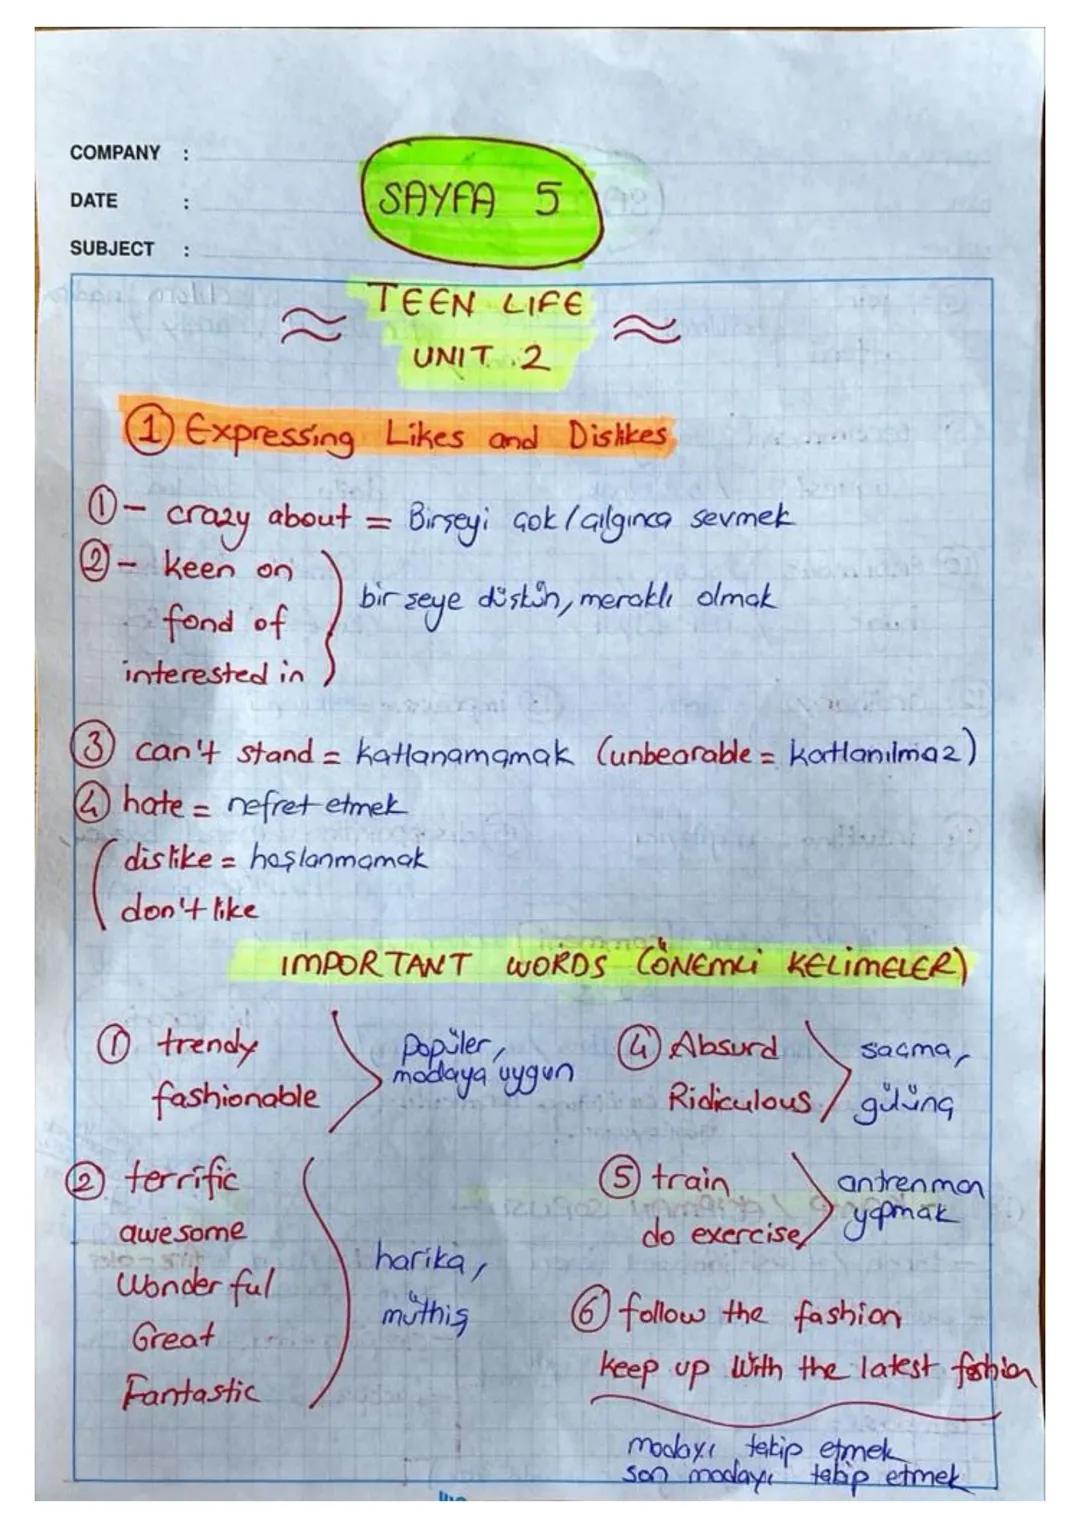 COMPANY :
DATE :
SUBJECT :
SAYFA 5
TEEN LIFE
UNIT 2
1 Expressing Likes and Dislikes
1 - crazy about = Birşeyi çok/çılgınca sevmek
2 - keen on
fond of
interested in
bir şeye düşkün, meraklı olmak
3 can't stand = katlanamamak (unbearable = katlanılmaz)
4 hate = nefret etmek
dislike = hoşlanmamak
don't like
IMPORTANT WORDS (ÖNEMLİ KELİMELER)
1 trendy
fashionable
Popüler,
modaya uygun
2 terrific
awesome
Wonderful
Great
Fantastic
harika,
müthiş
4 Absurd
Ridiculous
saçma,
gülünç
5 train
do exercise
antrenman
yapmak
6 follow the fashion
keep up with the latest fashion
modayı takip etmek
son modayı takip etmek